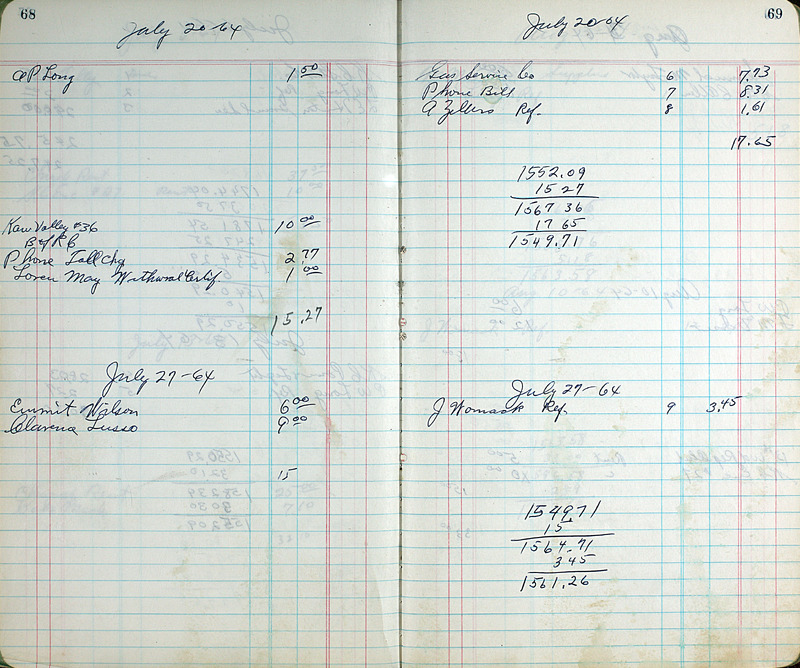 68
July 20-64
OP Long 1 50
Kaw Valley #36 10 00
B of R B
Phone Toll Chg 2 77
Loren May Withdrawal Certif. 1 00
15.27
July 27-64
Emmit Wilson 6 00
Clarence Lusso 9 00
15
69
July 20-64
Gas Service Co 6 7.73
Phone Bill 7 8.31
A Zellers Ref. 8 1.61
17.65
1552.09
15 27
1567 36
17 65
1549.71
July 27-64
J Womack Ref. 9 3.45
154971
15.
1564.71
345
1561.26